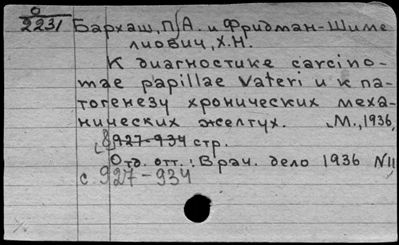 0
2231
Бархаш, П.А. и Фридман-Шиме
лиович, Х.Н.
К диагностике carcino-
mae papillae Vateri и к па-
тогенезу хронических меха-
нических желтух. М., 1936,
[8] 927-934 стр.
Отд. отт.: Врач. дело 1936 N11
с. 927-934